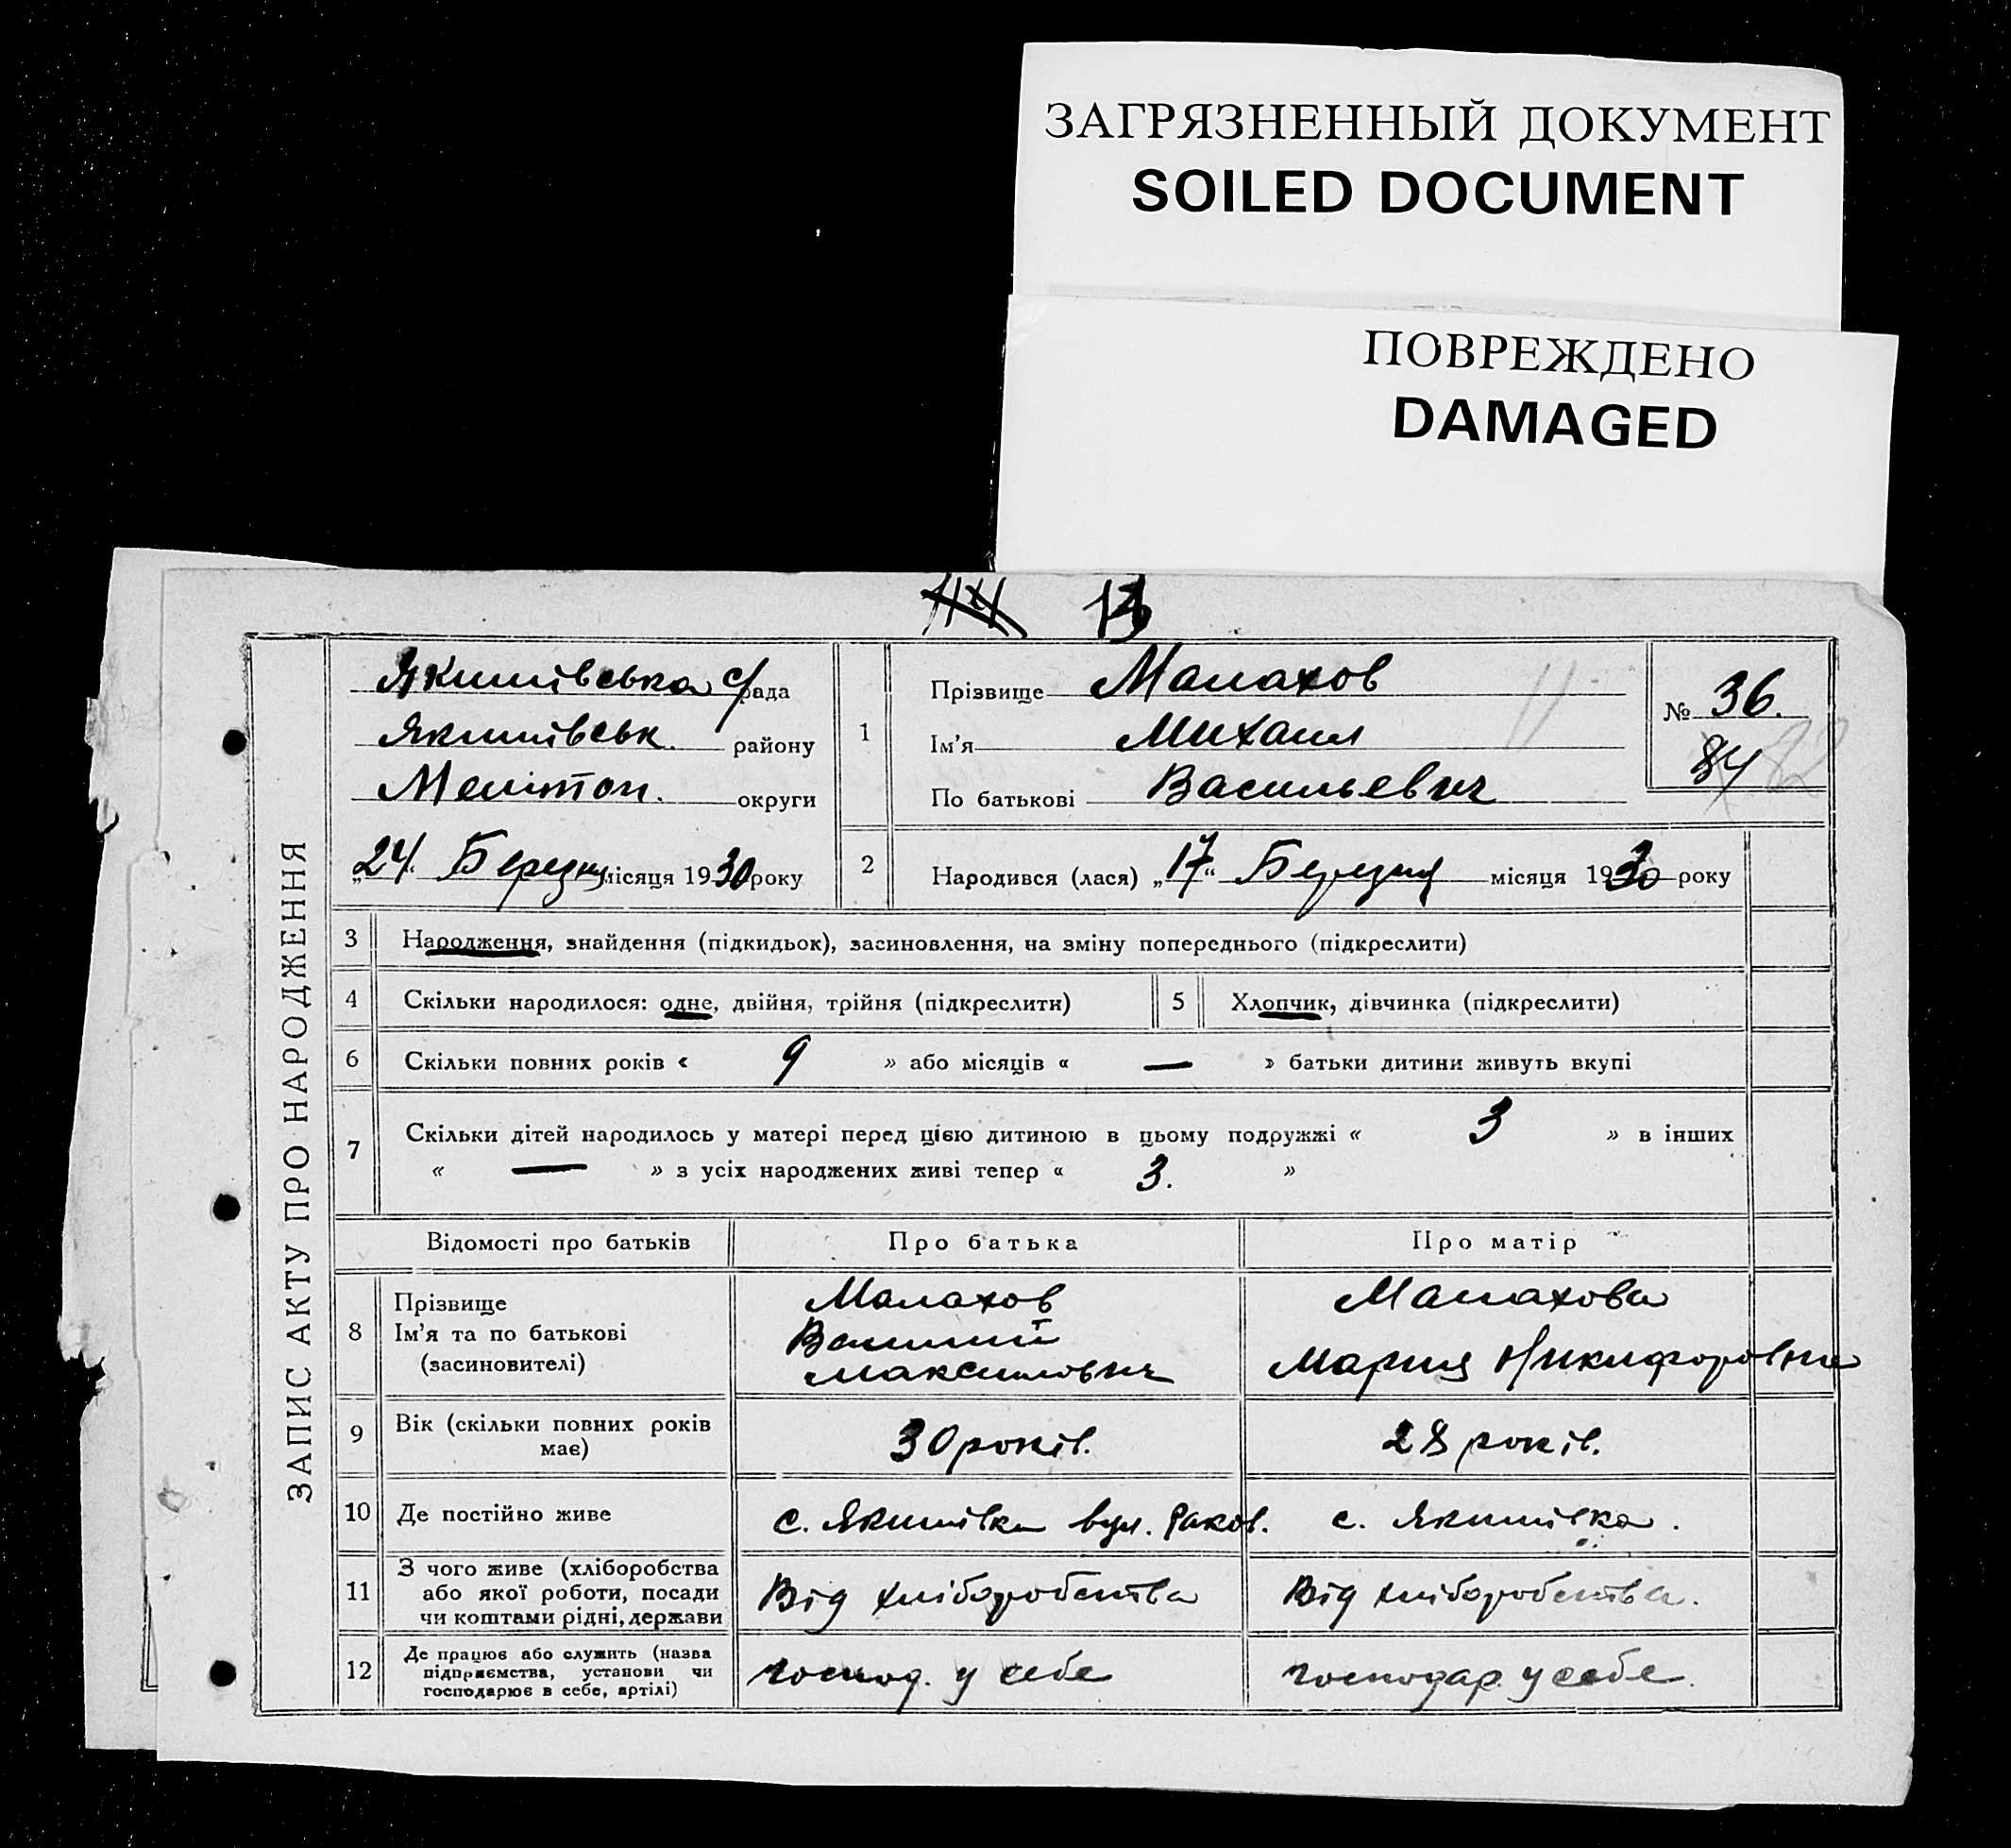 ЗАГРЯЗНЕННЫЙ ДОКУМЕНТ
SOILED DOCUMENT
ПОВРЕЖДЕНО
DAMAGED
ЗАПИС АКТУ ПРО НАРОДЖЕННЯ
Якимівська с/рада
Якимівськ. району
Мелітоп. округи
„24“ Березня місяця 1930 року
1
Прізвище Малахов
Ім'я Михаил
По батькові Васильевич
№ 36.
84
2
Народився (лася) „17“ Березня місяця 1930 року
3 Народження, знайдення (підкидьок), засиновлення, на зміну попереднього (підкреслити)
4 Скільки народилося: одне, двійня, трійня (підкреслити) 5 Хлопчик, дівчинка (підкреслити)
6 Скільки повних років « 9 » або місяців « — » батьки дитини живуть вкупі
7 Скільки дітей народилось у матері перед цією дитиною в цьому подружжі « 3 » в інших
« — » з усіх народжених живі тепер « 3. »
Відомості про батьків Про батька Про матір
8 Прізвище
Ім'я та по батькові
(засиновителі)
Малахов
Василий
Максимович
Малахова
Мария Никифоровна
9 Вік (скільки повних років
має)
30 років. 28 років.
10 Де постійно живе с. Якимівка вул. Раков. с. Якимівка.
11 З чого живе (хліборобства
або якої роботи, посади
чи коштами рідні, держави
Від хліборобства Від хліборобства.
12 Де працює або служить (назва
підприємства, установи чи
господарює в себе, артілі)
господ. у себе господар. у себе.